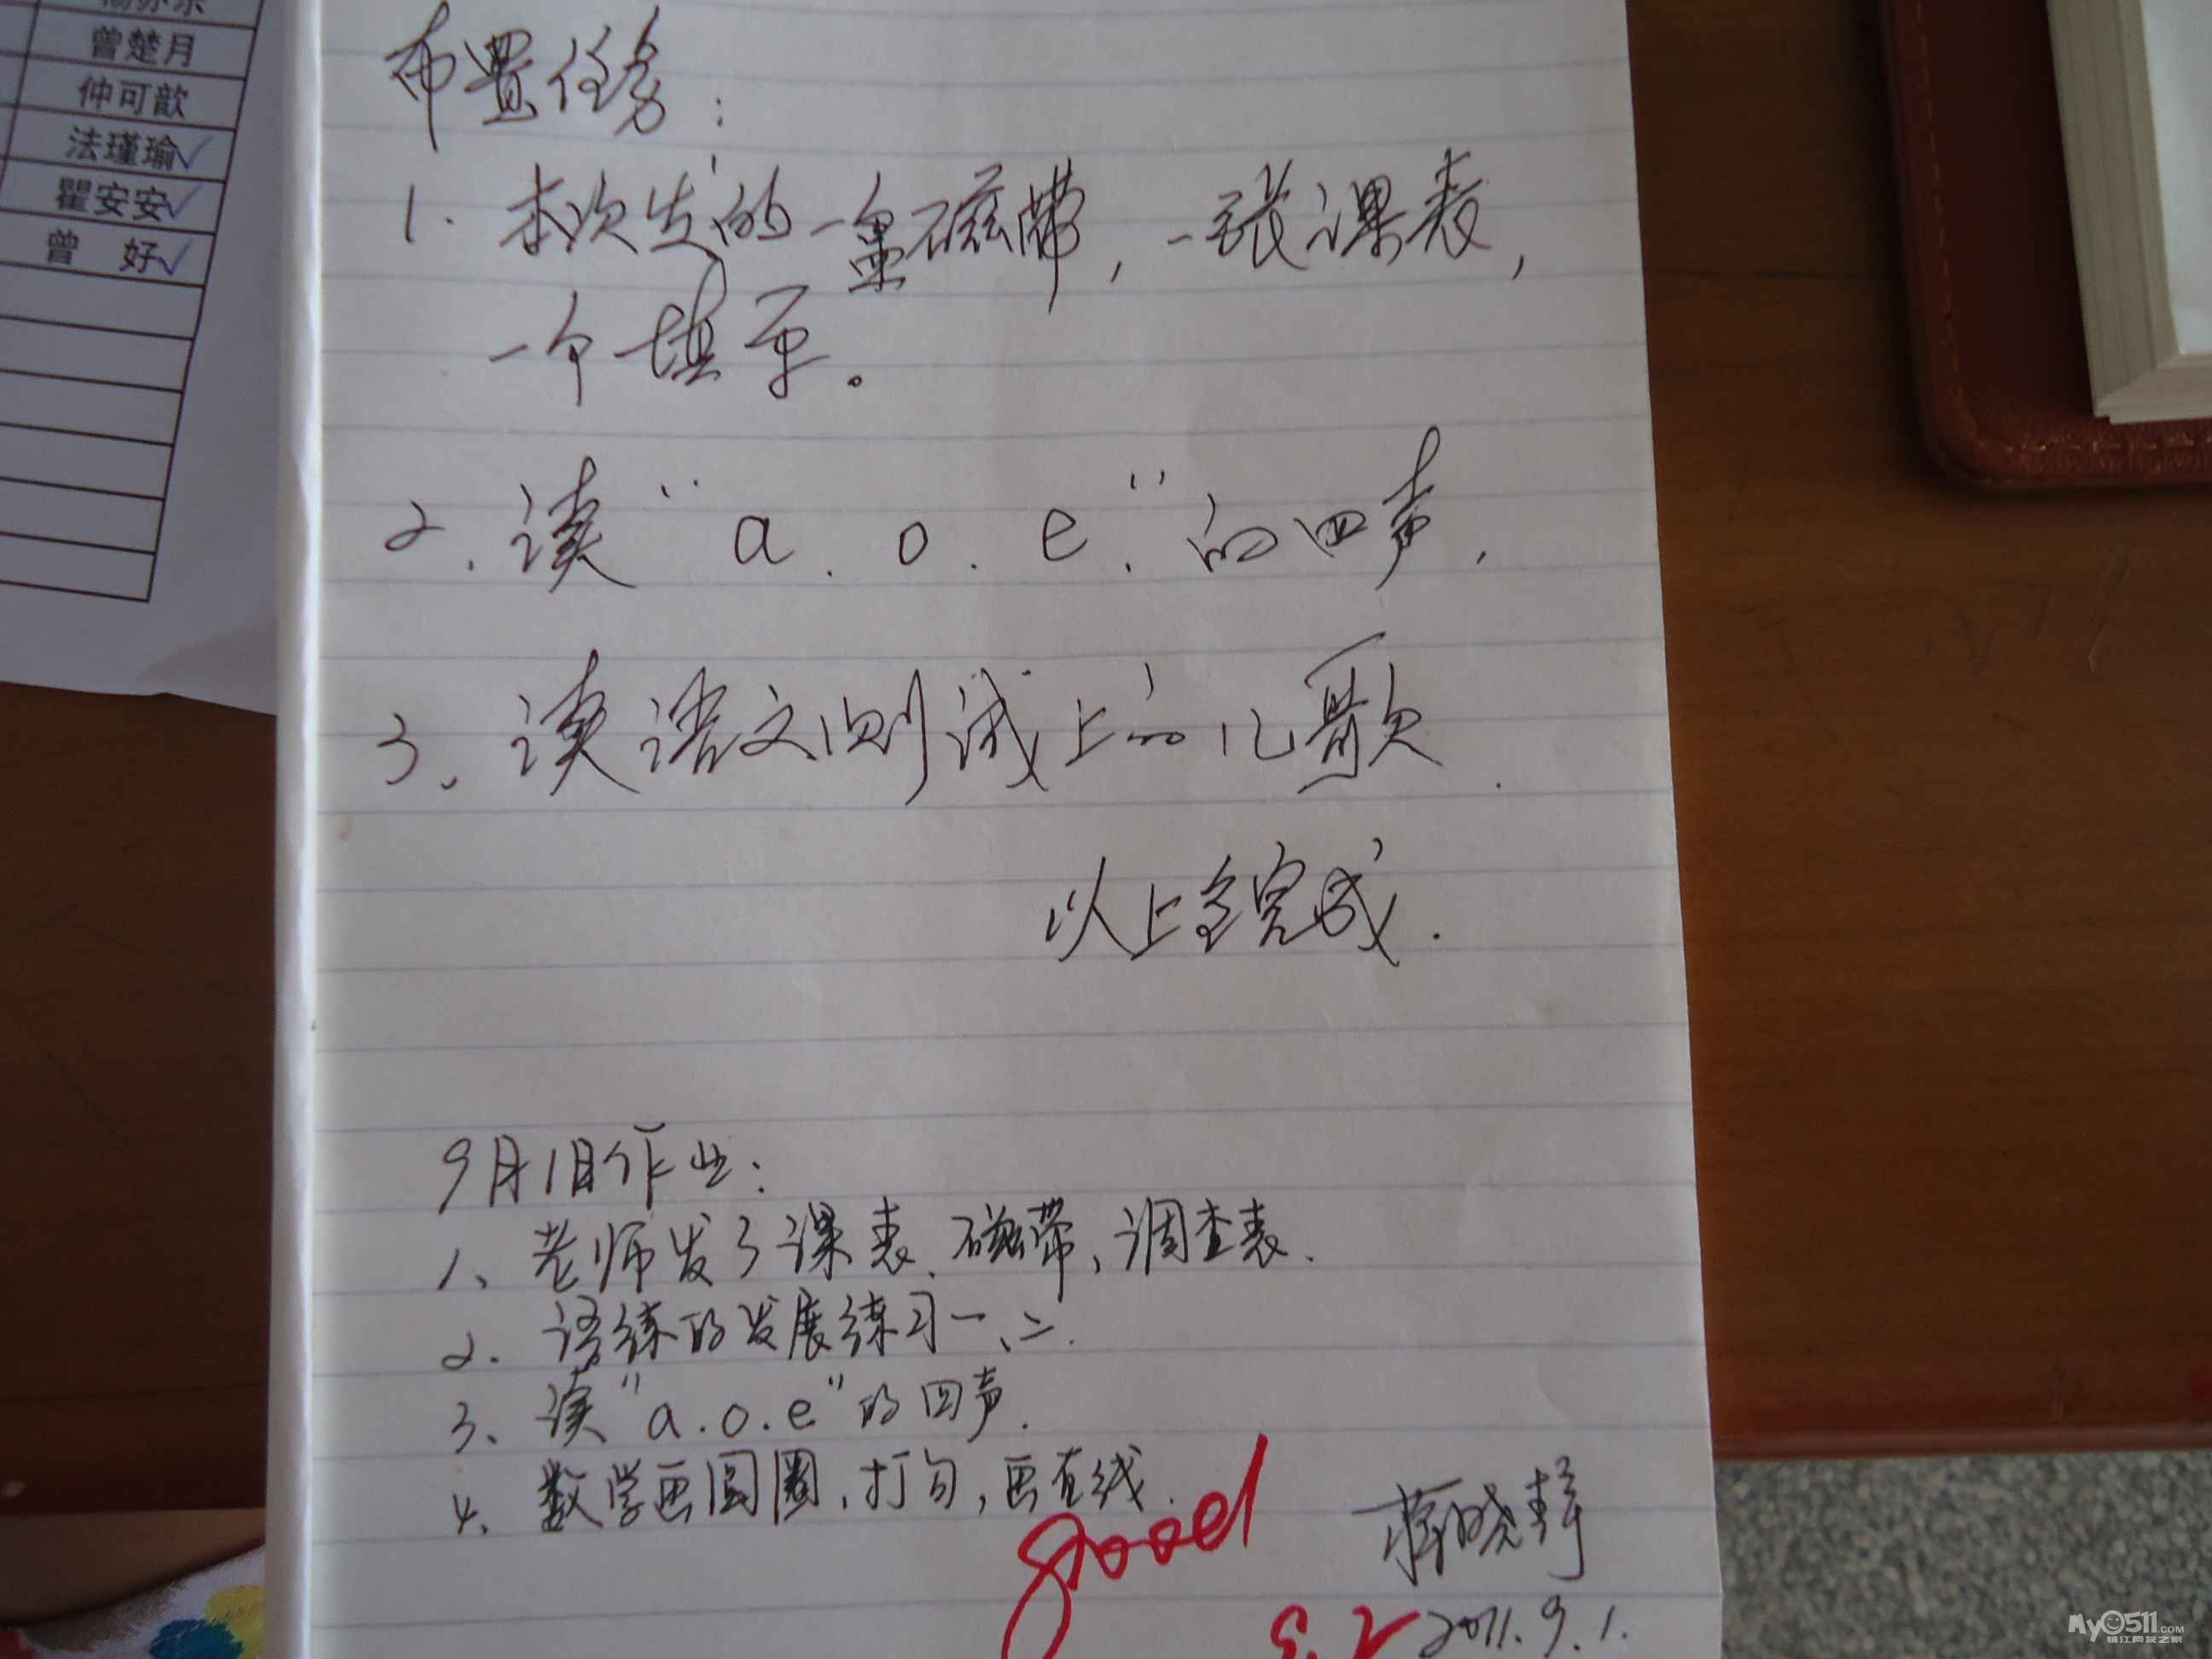 曾楚月
仲可歆
法瑾瑜✓
瞿安安✓
曾 好✓
布置任务：
1. 本次发的一盒磁带，一张课表，
一个填
2. 读“a. o. e.”的四声.
3. 读语文测试上的儿歌.
以上全完成.
9月1日作业：
1、老师发了课表、磁带、调查表.
2. 语练的发展练习一、二.
3、读“a.o.e”的四声.
4、数学画圆圈、打勾，画直线.
good
9.2
蒋晓静
2011.9.1.
My0511.COM
镇江网友之家